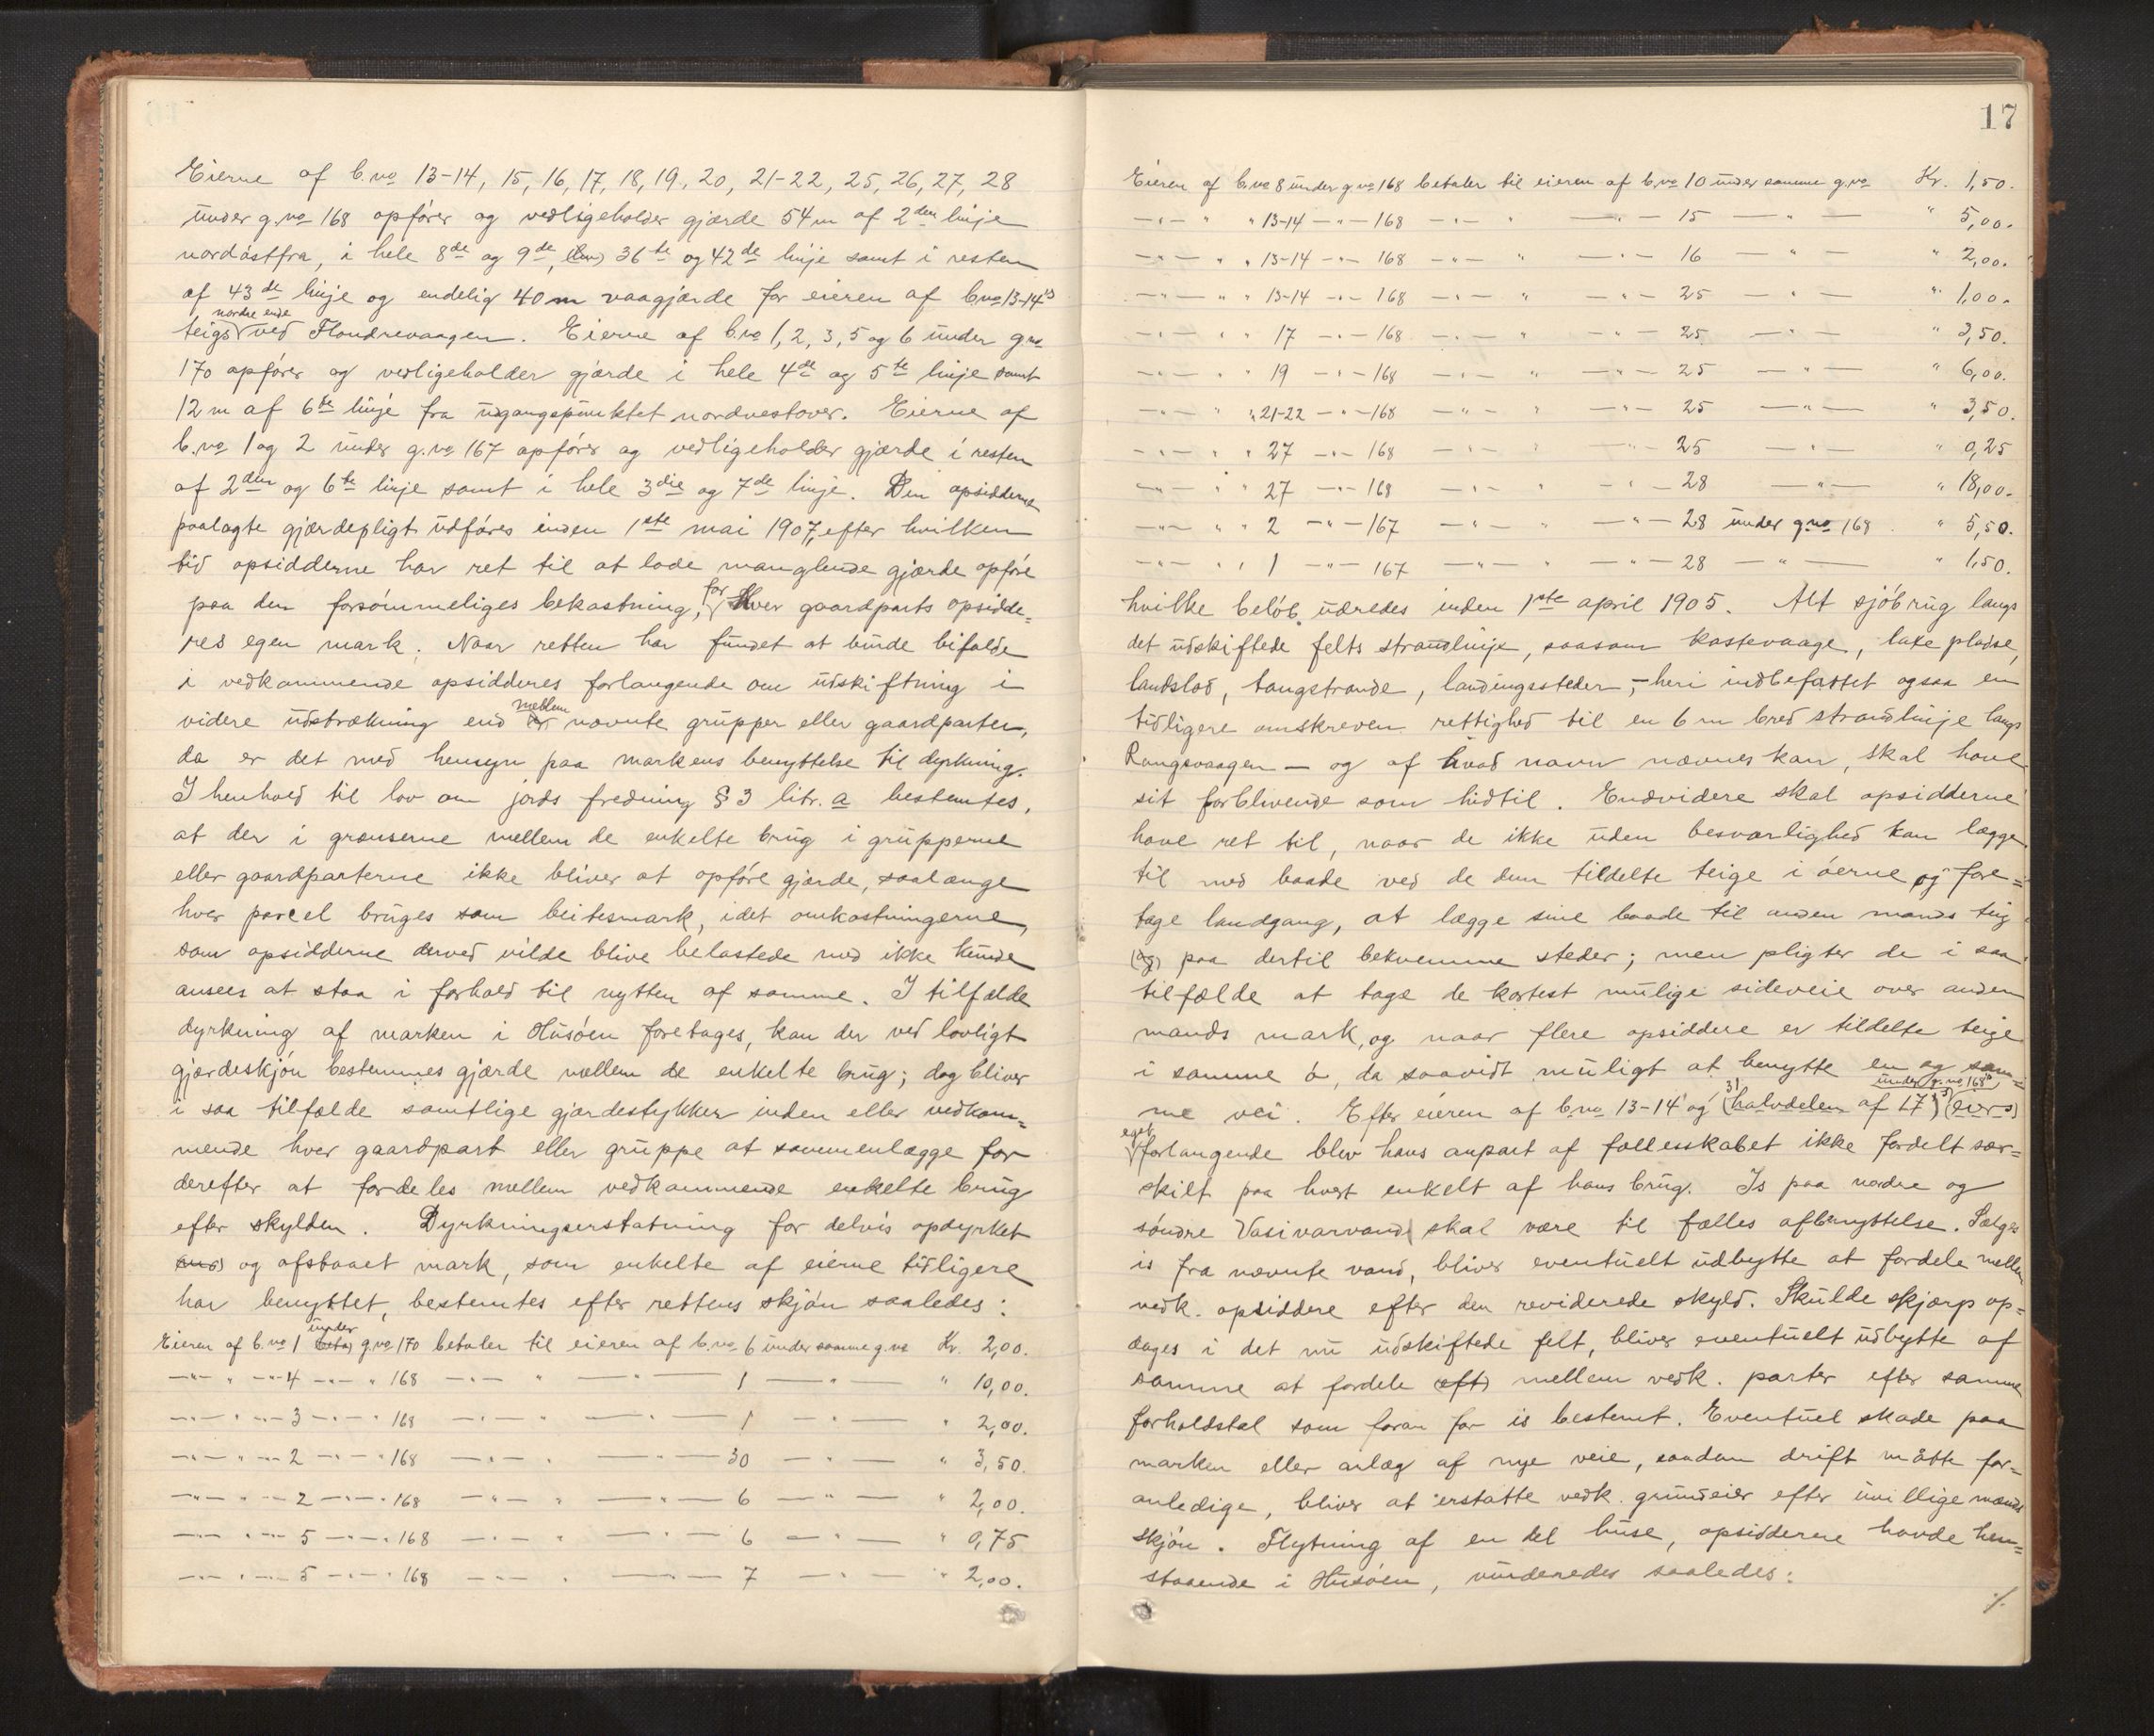 Eierne af b.no 13-14, 15, 16, 17, 18, 19, 20, 21-22, 25, 26, 27, 28
under g.no 168 opfører og vedligeholder gjærde 54 m af 2den linje
nordøstfra, i hele 8de og 9de, (den) 36te og 42de linje samt i resten
af 43de linje og endelig 40 m vaagjærde for eieren af b.no 13-14's
teigs nordre ende ved Flondrevaagen. Eierne af b.no 1, 2, 3, 5 og 6 under g.no
170 opfører og vedligeholder gjærde i hele 4de og 5te linje samt
12 m af 6te linje fra udgangspunktet nordvestover. Eierne af
b.no 1 og 2 under g.no 167 opfører og vedligeholder gjærde i resten
af 2den og 6te linje samt i hele 3die og 7de linje. Den opsidderne
paalagte gjærdepligt udføres inden 1ste mai 1907, efter hvilken
tid opsidderne har ret til at lade manglende gjærde opføre
paa den forsømmeliges bekostning, for hver gaardparts opsidde-
res egen mark. Naar retten har fundet at burde bifalde
i vedkommende opsidderes forlangende om udskiftning i
videre udstrækning end mellem nævnte grupper eller gaardparter,
da er det med hensyn paa markens benyttelse til dyrkning.
I henhold til lov om jords fredning § 3 litr. a bestemtes,
at der i grænserne mellem de enkelte brug i grupperne
eller gaardparterne ikke bliver at opføre gjærde, saalænge
hver parcel bruges som beitesmark, idet omkostningerne,
som opsidderne derved vilde blive belastede med ikke kunde
ansees at staa i forhold til nytten af samme. I tilfælde
dyrkning af marken i Husøen foretages, kan der ved lovligt
gjærdeskjøn bestemmes gjærde mellem de enkelte brug; dog bliver
i saa tilfælde samtlige gjærdestykker inden eller vedkom-
mende hver gaardpart eller gruppe at sammenlægge for
derefter at fordeles mellem vedkommende enkelte brug
efter skylden. Dyrkningserstatning for delvis opdyrket
og afstaaet mark, som enkelte af eierne tidligere
har benyttet, bestemtes efter rettens skjøn saaledes:
Eieren af b.no 1 under g.no 170 betaler til eieren af b.no 6 under samme g.no Kr. 2,00.
—"— " —"— 4 —"— " 168 —"— " —"— 1 —"— " 10,00.
—"— " —"— 3 —"— " 168 —"— " —"— 1 —"— " 2,00.
—"— " —"— 2 —"— " 168 —"— " —"— 30 —"— " 3,50.
—"— " —"— 2 —"— " 168 —"— " —"— 6 —"— " 2,00.
—"— " —"— 5 —"— " 168 —"— " —"— 6 —"— " 0,75
—"— " —"— 5 —"— " 168 —"— " —"— 7 —"— " 2,00.
17
Eieren af b.no 8 under g.no 168 betaler til eieren af b.no 10 under samme g.no Kr. 1,50.
—"— " " 13-14 —"— 168 —"— " —"— 15 —"— " 5,00.
—"— " " 13-14 —"— 168 —"— " —"— 16 —"— " 2,00.
—"— " " 13-14 —"— 168 —"— " —"— 25 —"— " 1,00.
—"— " " 17 —"— 168 —"— " —"— 25 —"— " 3,50.
—"— " " 19 —"— 168 —"— " —"— 25 —"— " 6,00.
—"— " " 21-22 —"— 168 —"— " —"— 25 —"— " 3,50.
—"— " " 27 —"— 168 —"— " —"— 25 —"— " 0,25
—"— " " 27 —"— 168 —"— " —"— 28 —"— " 18,00.
—"— " " 2 —"— 167 —"— " —"— 28 under g.no 168 " 5,50.
—"— " " 1 —"— 167 —"— " —"— 28 —"— " 1,50.
hvilke beløb udredes inden 1ste april 1905. Alt sjøbrug langs
det udskiftede felts strandlinje, saasom kastevaage, laxepladse,
landslod, tangstrande, landingssteder, – heri indbefattet ogsaa en
tidligere omskreven rettighed til en 6 m bred strandlinje langs
Rongsvaagen – og af hvad navn nævnes kan, skal have
sit forblivende som hidtil. Endvidere skal opsidderne
have ret til, naar de ikke uden besværlighed kan lægge
til med baade ved de dem tildelte teige i øerne og fore-
tage landgang, at lægge sine baade til anden mands teig
(og) paa dertil bekvemme steder; men pligter de i saa
tilfælde at tage de kortest mulige sideveie over anden
mands mark, og naar flere opsiddere er tildelte teige
i samme ø, da saavidt muligt at benytte en og sam-
me vei. Efter eieren af b.no 13-14 og (halvdelen af 17) under g.no 168's (eiers)
eget forlangende blev hans anpart af fællesskabet ikke fordelt sær-
skilt paa hvert enkelt af hans brug. Is paa nordre og
søndre Vasivarvand skal være til fælles afbenyttelse. Sælges
is fra nævnte vand, bliver eventuelt udbytte at fordele mellem
vedk. opsiddere efter den reviderede skyld. Skulde skjærp op-
dages i det nu udskiftede felt, bliver eventuelt udbytte af
samme at fordele (eft) mellem vedk. parter efter samme
forholdstal som foran for is bestemt. Eventuel skade paa
marken eller anlæg af nye veie, saadan drift måtte for-
anledige, bliver at erstatte vedk. grundeier efter uvillige mænds
skjøn. Flytning af en del huse, opsidderne havde hen-
staaende i Husøen, vurderedes saaledes:
./.